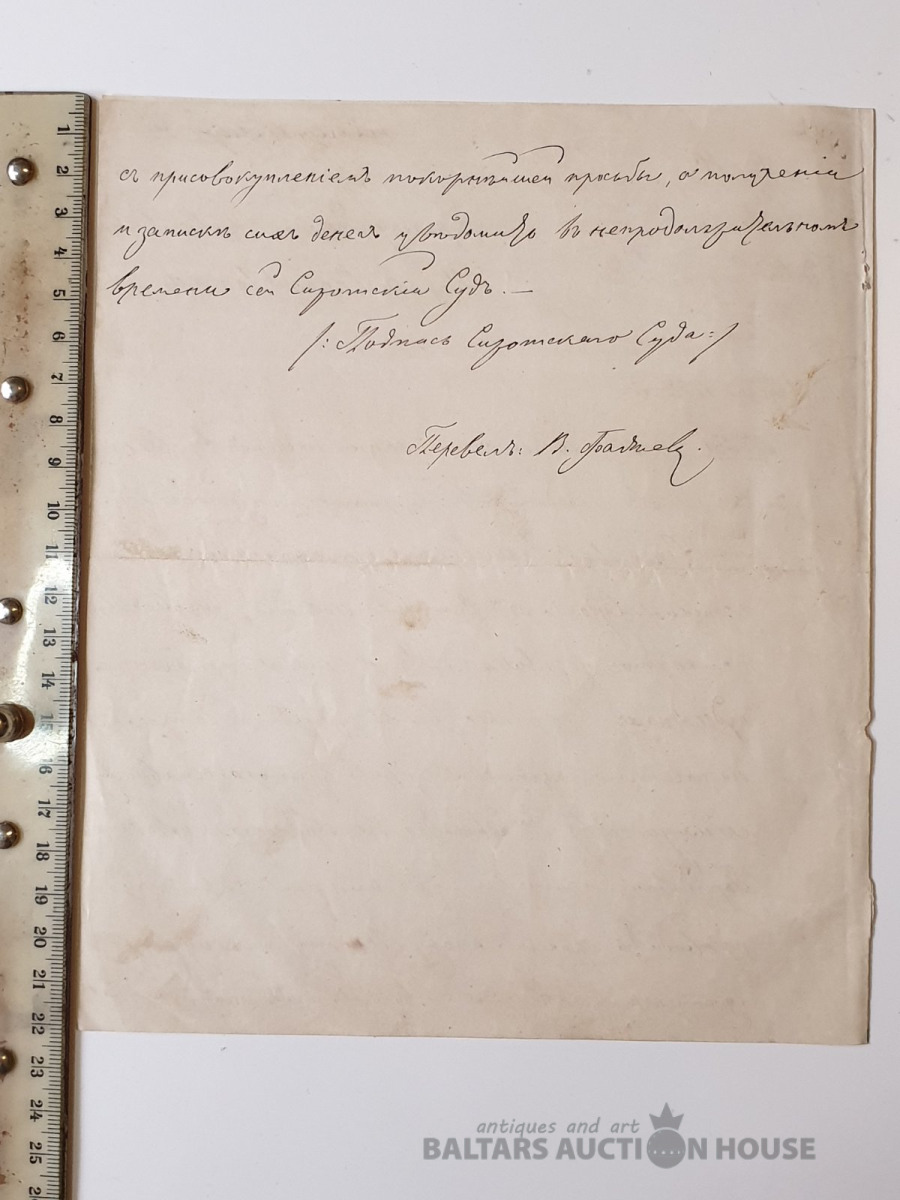 съ присовокупленіемъ покорнѣйшей просьбы, о полученіи
и запискѣ сихъ денегъ увѣдомить въ непродолжительномъ
времени сей Сиротскій Судъ. —
/: Подпись Сиротскаго Суда :/
Перевелъ: В.
1
2
3
4
5
6
7
8
9
10
11
12
13
14
15
16
17
18
19
20
21
22
23
24
25
antiques and art
BALTARS AUCTION HOUSE